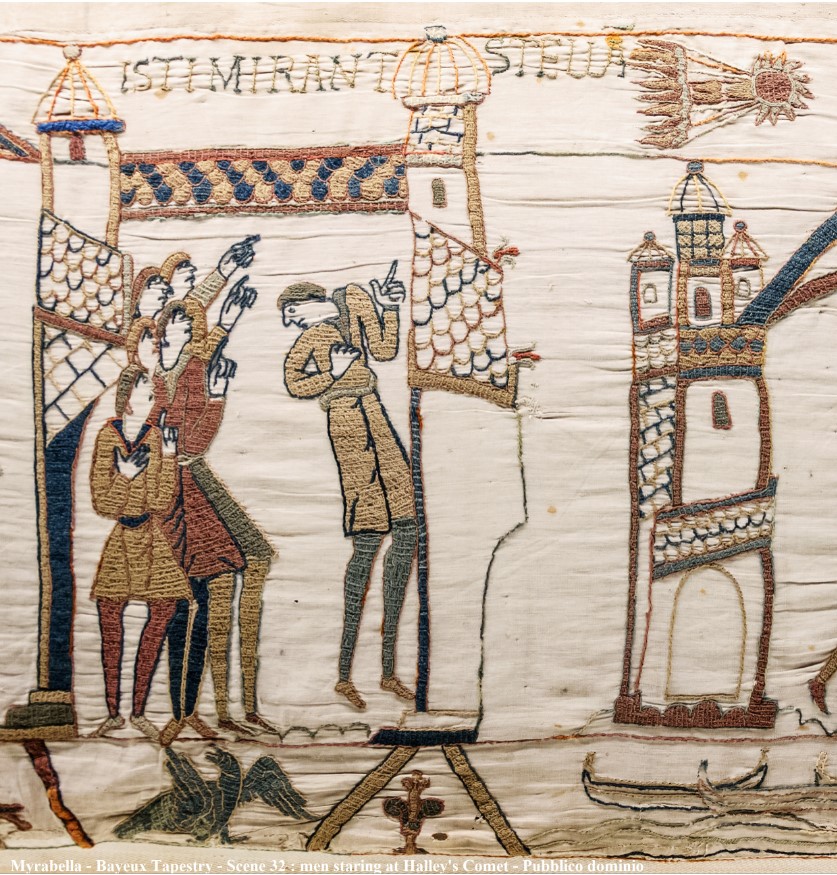 ISTI MIRANT STELLA
Myrabella - Bayeux Tapestry - Scene 32 : men staring at Halley's Comet - Pubblico dominio